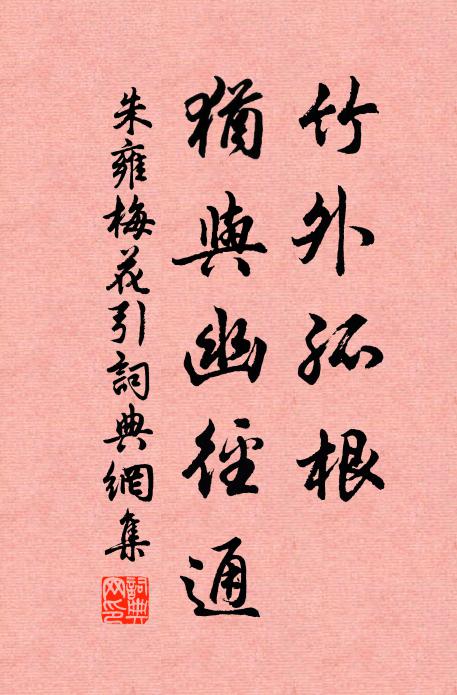 竹外孤根
猶與幽徑通
朱雍梅花引詞典網集
詞典网印